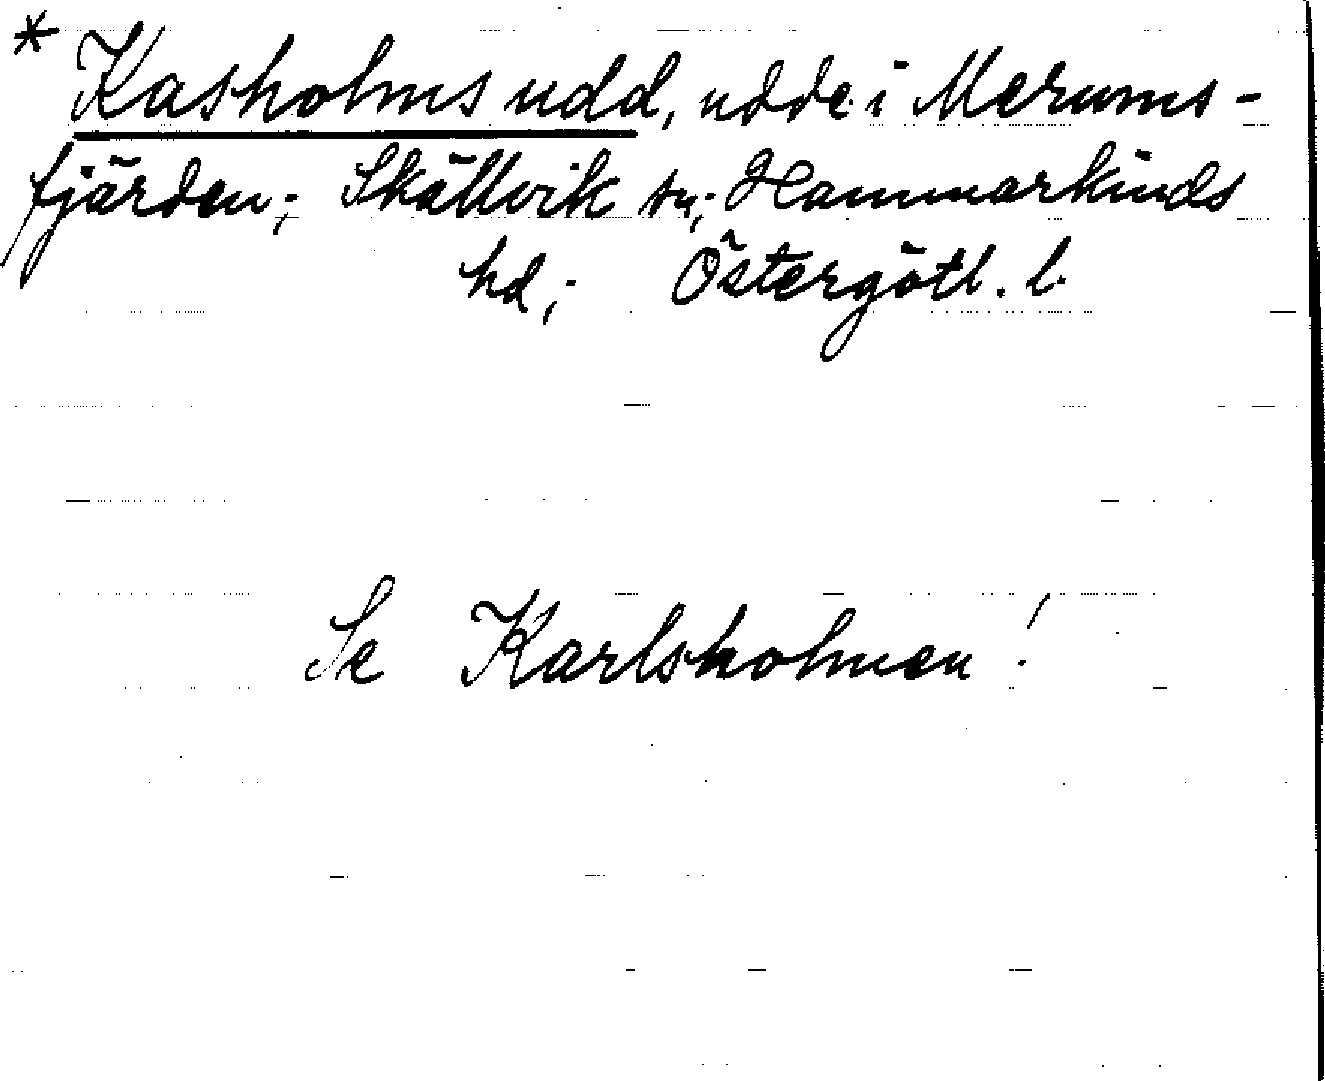 * Kasholms udd, udde i Merums-
fjärden; Skällvik sn; Hammarkinds
hd; Östergötl. l.
Se Karlsholmen!